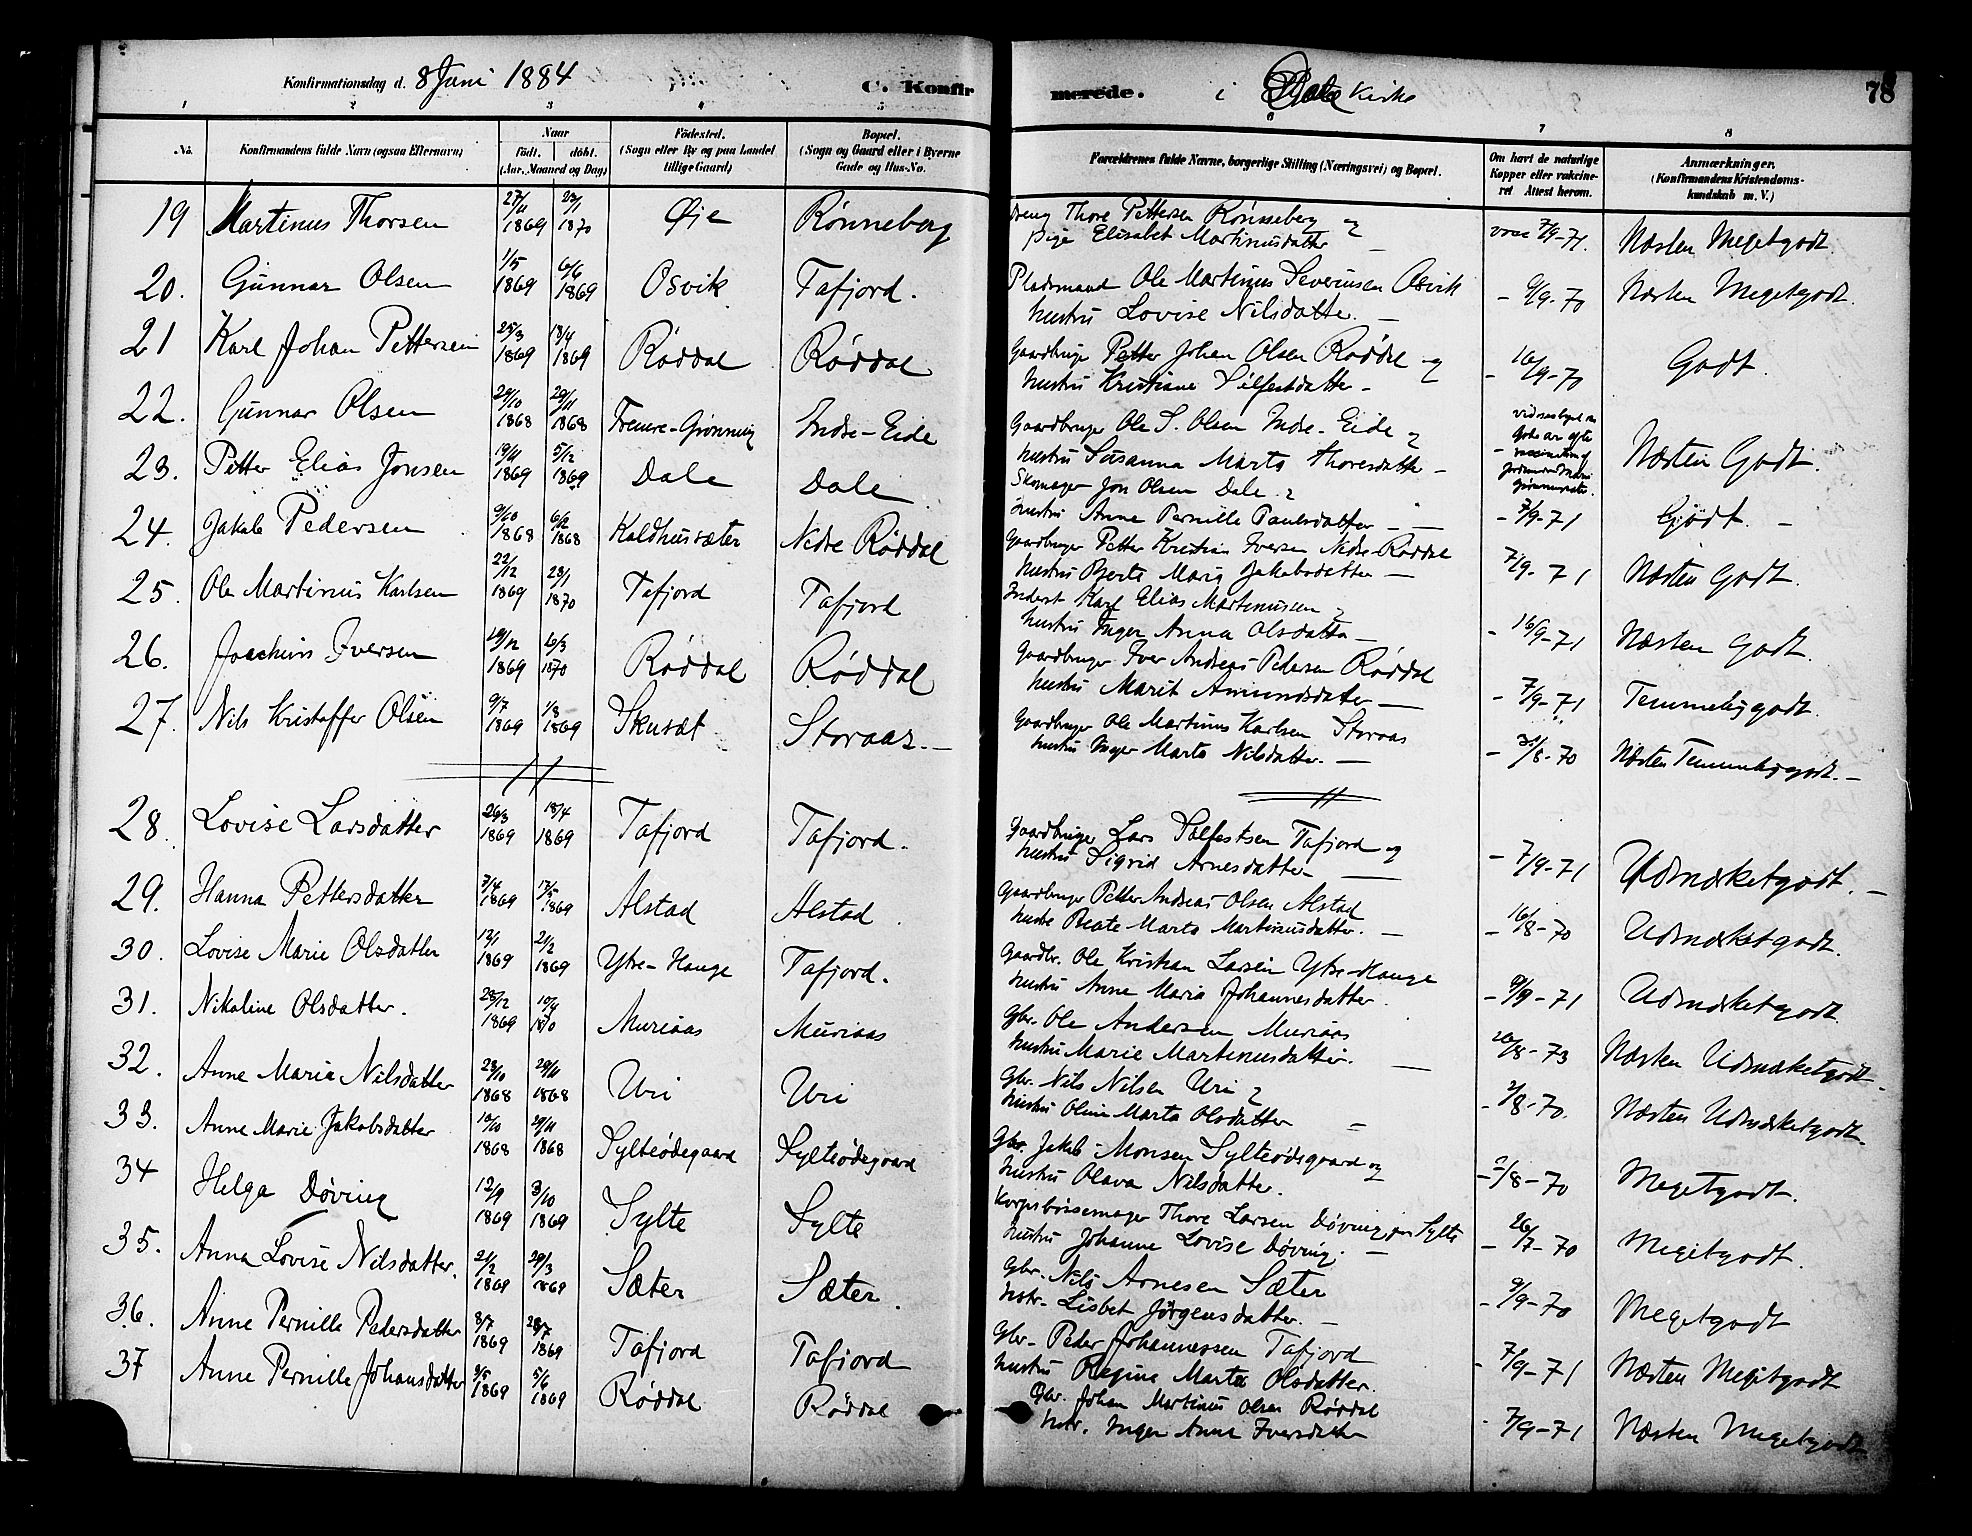 Konfirmationsdag d. 8 Juni 1884
C. Konfirmerede. i Dale Kirke 78
1 2 3 4 5 6 7 8
No.
Konfirmandens fulde Navn (ogsaa Efternavn)
Naar født. døbt. (Aar, Maaned og Dag)
Fødested. (Sogn eller By og paa Landet tillige Gaard)
Bopæl. (Sogn og Gaard eller i Byerne Gade og Hus-No.
Forældrenes fulde Navne, borgerlige Stilling (Næringsvei) og Bopæl.
Om havt de naturlige Kopper eller vakcineret Attest herom.
Anmærkninger. (Konfirmandens Kristendomskundskab m. V.)
19 Martinus Thorsen 27/11 1869 23/1 1870 Øie Rønneberg Dreng Thore Pettersen Rønneberg &
Pige Elisabet Martinusdatter — vacc 7/9-71. Næsten Megetgodt.
20. Gunnar Olsen 1/5 1869 6/6 1869 Osvik Tafjord. Pladsmand Ole Martinus Severinsen Osvik
hustru Lovise Nilsdatter. — - 9/9-70 Næsten Megetgodt.
21 Karl Johan Pettersen 25/3 1869 18/4 1869 Røddal Røddal Gaardbruger Petter Johan Olsen Røddal og
hustru Kristiane Silfestdatter - - 16/9-70 Godt.
22. Gunnar Olsen 29/10 1868 29/11 1868 Fremre-Grønning Indre-Eide Gaardbruger Ole S. Olsen Indre-Eide &
hustru Susanna Marta Thoresdatter - Næsten Godt.
23. Petter Elias Jonsen 19/11 1869 5/12 1869 Dale Dale Skomager Jon Olsen Dale &
hustru Anne Pernille Paulsdatter - — - 7/9-71 Godt. -
24. Jakob Pedersen 9/10 1868 6/12 1868 Kaldhussæter Nedre Røddal Gaardbruger Petter Kristian Iversen Nedre-Røddal
hustru Berte Maria Jakobsdatter — 7/9-71 Næsten Godt.
25. Ole Martinus Karlsen 22/12 1869 23/1 1870 Tafjord Tafjord Inderst Karl Elias Martinussen &
hustru Inger Anna Olsdatter — - 16/9-71 Næsten Godt.
26. Joachim Iversen 19/12 1869 6/3 1870 Røddal Røddal Gaardbruger Iver Andreas Pedersen Røddal
hustru Marit Amundsdatter — - 7/9-71 Temmeliggodt.
27. Nils Kristoffer Olsen 9/7 1869 1/8 1869 Skusæt Storaas. — Gaardbruger Ole Martinus Karlsen Storaas
hustru Inger Marta Nilsdatter. — - 31/8-70 Næsten Temmeliggodt. -
28. Lovise Larsdatter 26/3 1869 18/4 1869 Tafjord Tafjord. Gaardbruger Lars Silfestsen Tafjord og
hustru Sigrid Arnesdatter — - 7/9-71 Udmærketgodt. —
29. Hanna Pettersdatter 7/4 1869 17/5 1869 Alstad Alstad. Gaardbruger Petter Andreas Olsen Alstad
hustru Beate Marta Martinusdatter. — - 16/8-70 Udmærketgodt.
30. Lovise Marie Olsdatter 13/1 1869 21/2 1869 Ytre-Hauge Tafjord. Gaardbr. Ole Kristian Larsen Ytre-Hauge
hustru Anne Maria Johannesdatter. - 9/9-71 Udmærketgodt.
31. Nikoline Olsdatter. 28/12 1869 10/4 1870 Muriaas Muriaas Gbr. Ole Andersen Muriaas
hustru Marie Martinusdatter. — 26/8-73 Næsten Udmærketgodt.
32. Anne Maria Nilsdatter 23/10 1868 29/11 1868 Uri Uri Gbr. Nils Nilsen Uri &
hustru Oline Marta Olsdatter - 2/8-70. Næsten Udmærketgodt.
33. Anne Marie Jakobsdatter 10/10 1868 29/11 1868 Sylteødegaard Sylteødegaard Gbr. Jakob Monsen Sylteødegaard og
hustru Olava Nilsdatter. - 2/8-70 Megetgodt.
34 Helga Døving 12/9 1869 3/10 1869 Sylte Sylte Korpsbøssemager Thore Larsen Døving Sylte
hustru Johanne Lovise Døving. — - 26/7-70 Megetgodt.
35. Anna Lovise Nilsdatter. 2/2 1869 29/3 1869 Sæter Sæter. Gbr. Nils Arnesen Sæter
hstr. Lisbet Jørgensdatter. — - 9/9-70 Megetgodt
36. Anne Pernille Pedersdatter 8/7 1869 28/7 1869 Tafjord Tafjord Gbr. Peder Johannessen Tafjord
hustru Regine Marta Olsdatter. - 7/9-71 Næsten Megetgodt
37 Anne Pernille Johansdatter 9/5 1869 5/6 1869 Røddal Røddal Gbr. Johan Martinus Olsen Røddal
hstr. Inger Anna Iversdatter - 7/9-71 Næsten Megetgodt